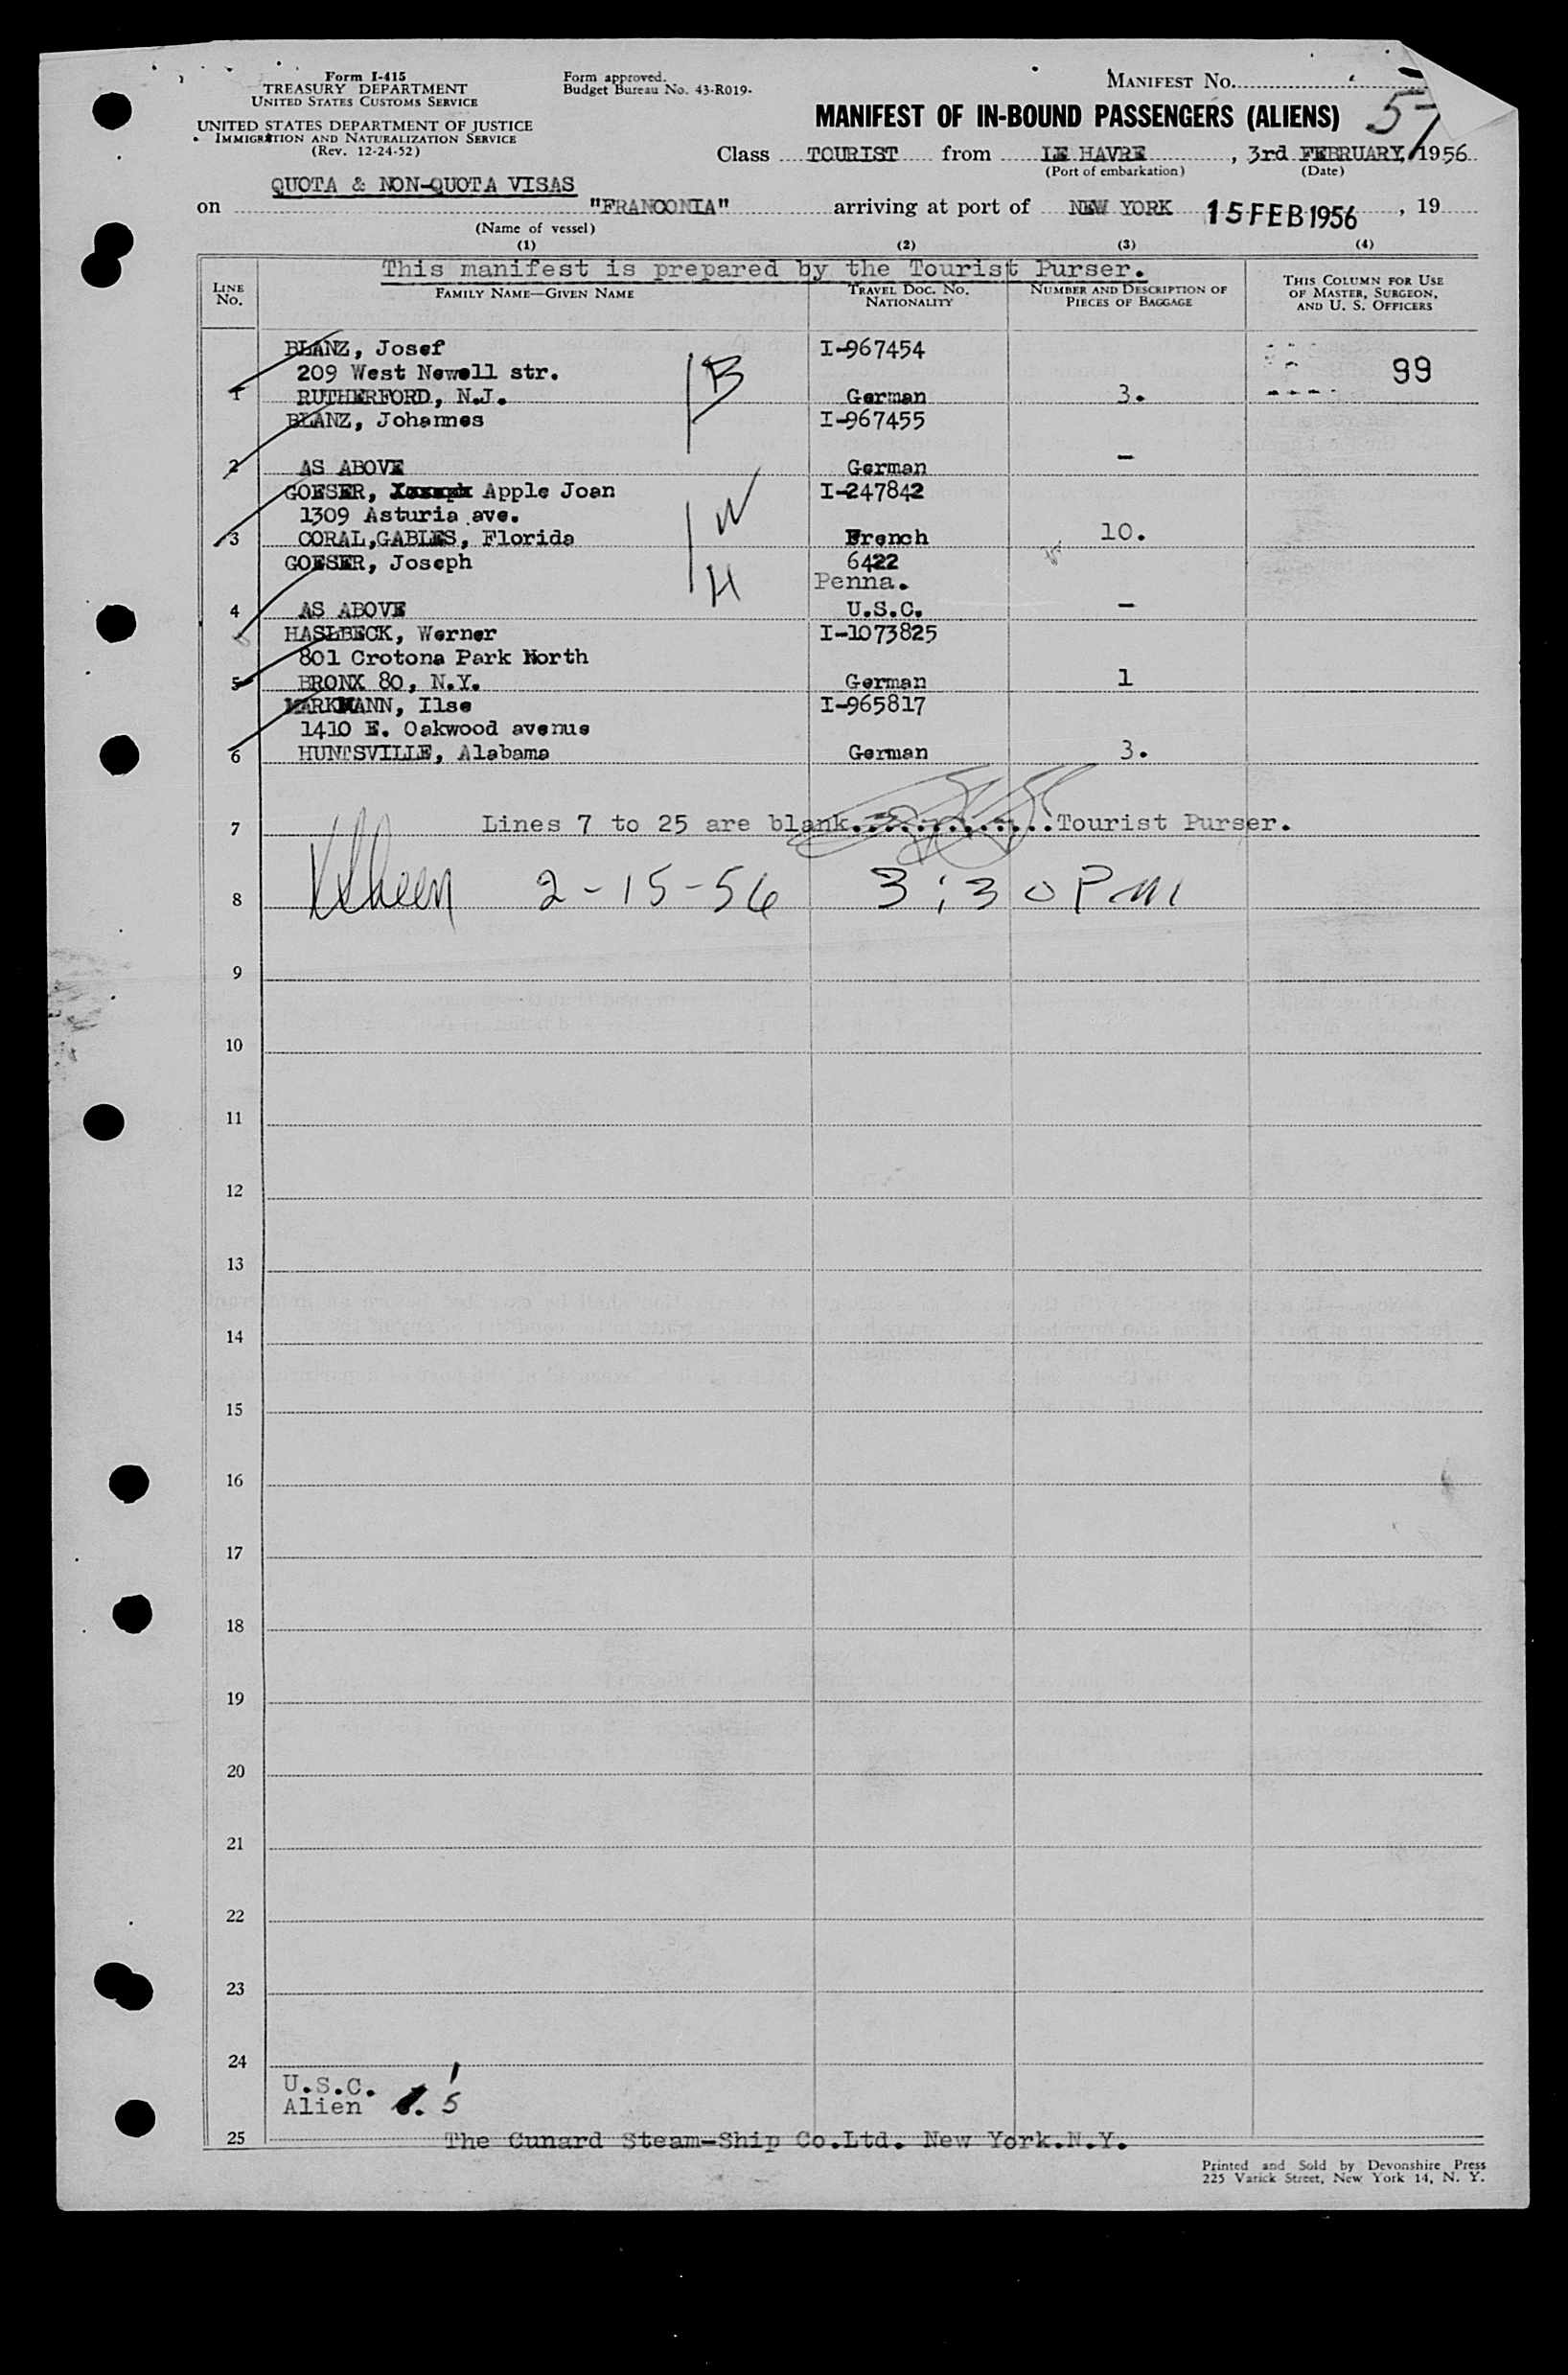 Form I-415
TREASURY DEPARTMENT
UNITED STATES CUSTOMS SERVICE
UNITED STATES DEPARTMENT OF JUSTICE
IMMIGRATION AND NATURALIZATION SERVICE
(Rev. 12-24-52)
Form approved.
Budget Bureau No. 43-R019-
MANIFEST No.
57
MANIFEST OF IN-BOUND PASSENGERS (ALIENS)
Class TOURIST from LE HAVRE, 3rd FEBRUARY, 1956
(Port of embarkation) (Date)
QUOTA & NON-QUOTA VISAS
on "FRANCONIA" arriving at port of NEW YORK 15 FEB 1956, 19
(Name of vessel)
(1) (2) (3) (4)
This manifest is prepared by the Tourist Purser.
LINE No. FAMILY NAME—GIVEN NAME TRAVEL DOC. No. NATIONALITY NUMBER AND DESCRIPTION OF PIECES OF BAGGAGE THIS COLUMN FOR USE OF MASTER, SURGEON, AND U. S. OFFICERS
BLANZ, Josef I-967454
209 West Newell str. B 99
1 RUTHERFORD, N.J. German 3.
BLANZ, Johannes I-967455
2 AS ABOVE German –
GOESER, Apple Joan I-247842
1309 Asturia ave. W
3 CORAL,GABLES, Florida French 10.
GOESER, Joseph 6422
H Penna.
4 AS ABOVE U.S.C. –
HASLBECK, Werner I-1073825
801 Crotona Park North
5 BRONX 80, N.Y. German 1
MARKMANN, Ilse I-965817
1410 E. Oakwood avenue
6 HUNTSVILLE, Alabama German 3.
7 Lines 7 to 25 are blank.............Tourist Purser.
8 2-15-56 3:30 PM
9
10
11
12
13
14
15
16
17
18
19
20
21
22
23
24
U.S.C. 1
Alien 5
25 The Cunard Steam-Ship Co.Ltd. New York.N.Y.
Printed and Sold by Devonshire Press
225 Varick Street, New York 14, N. Y.